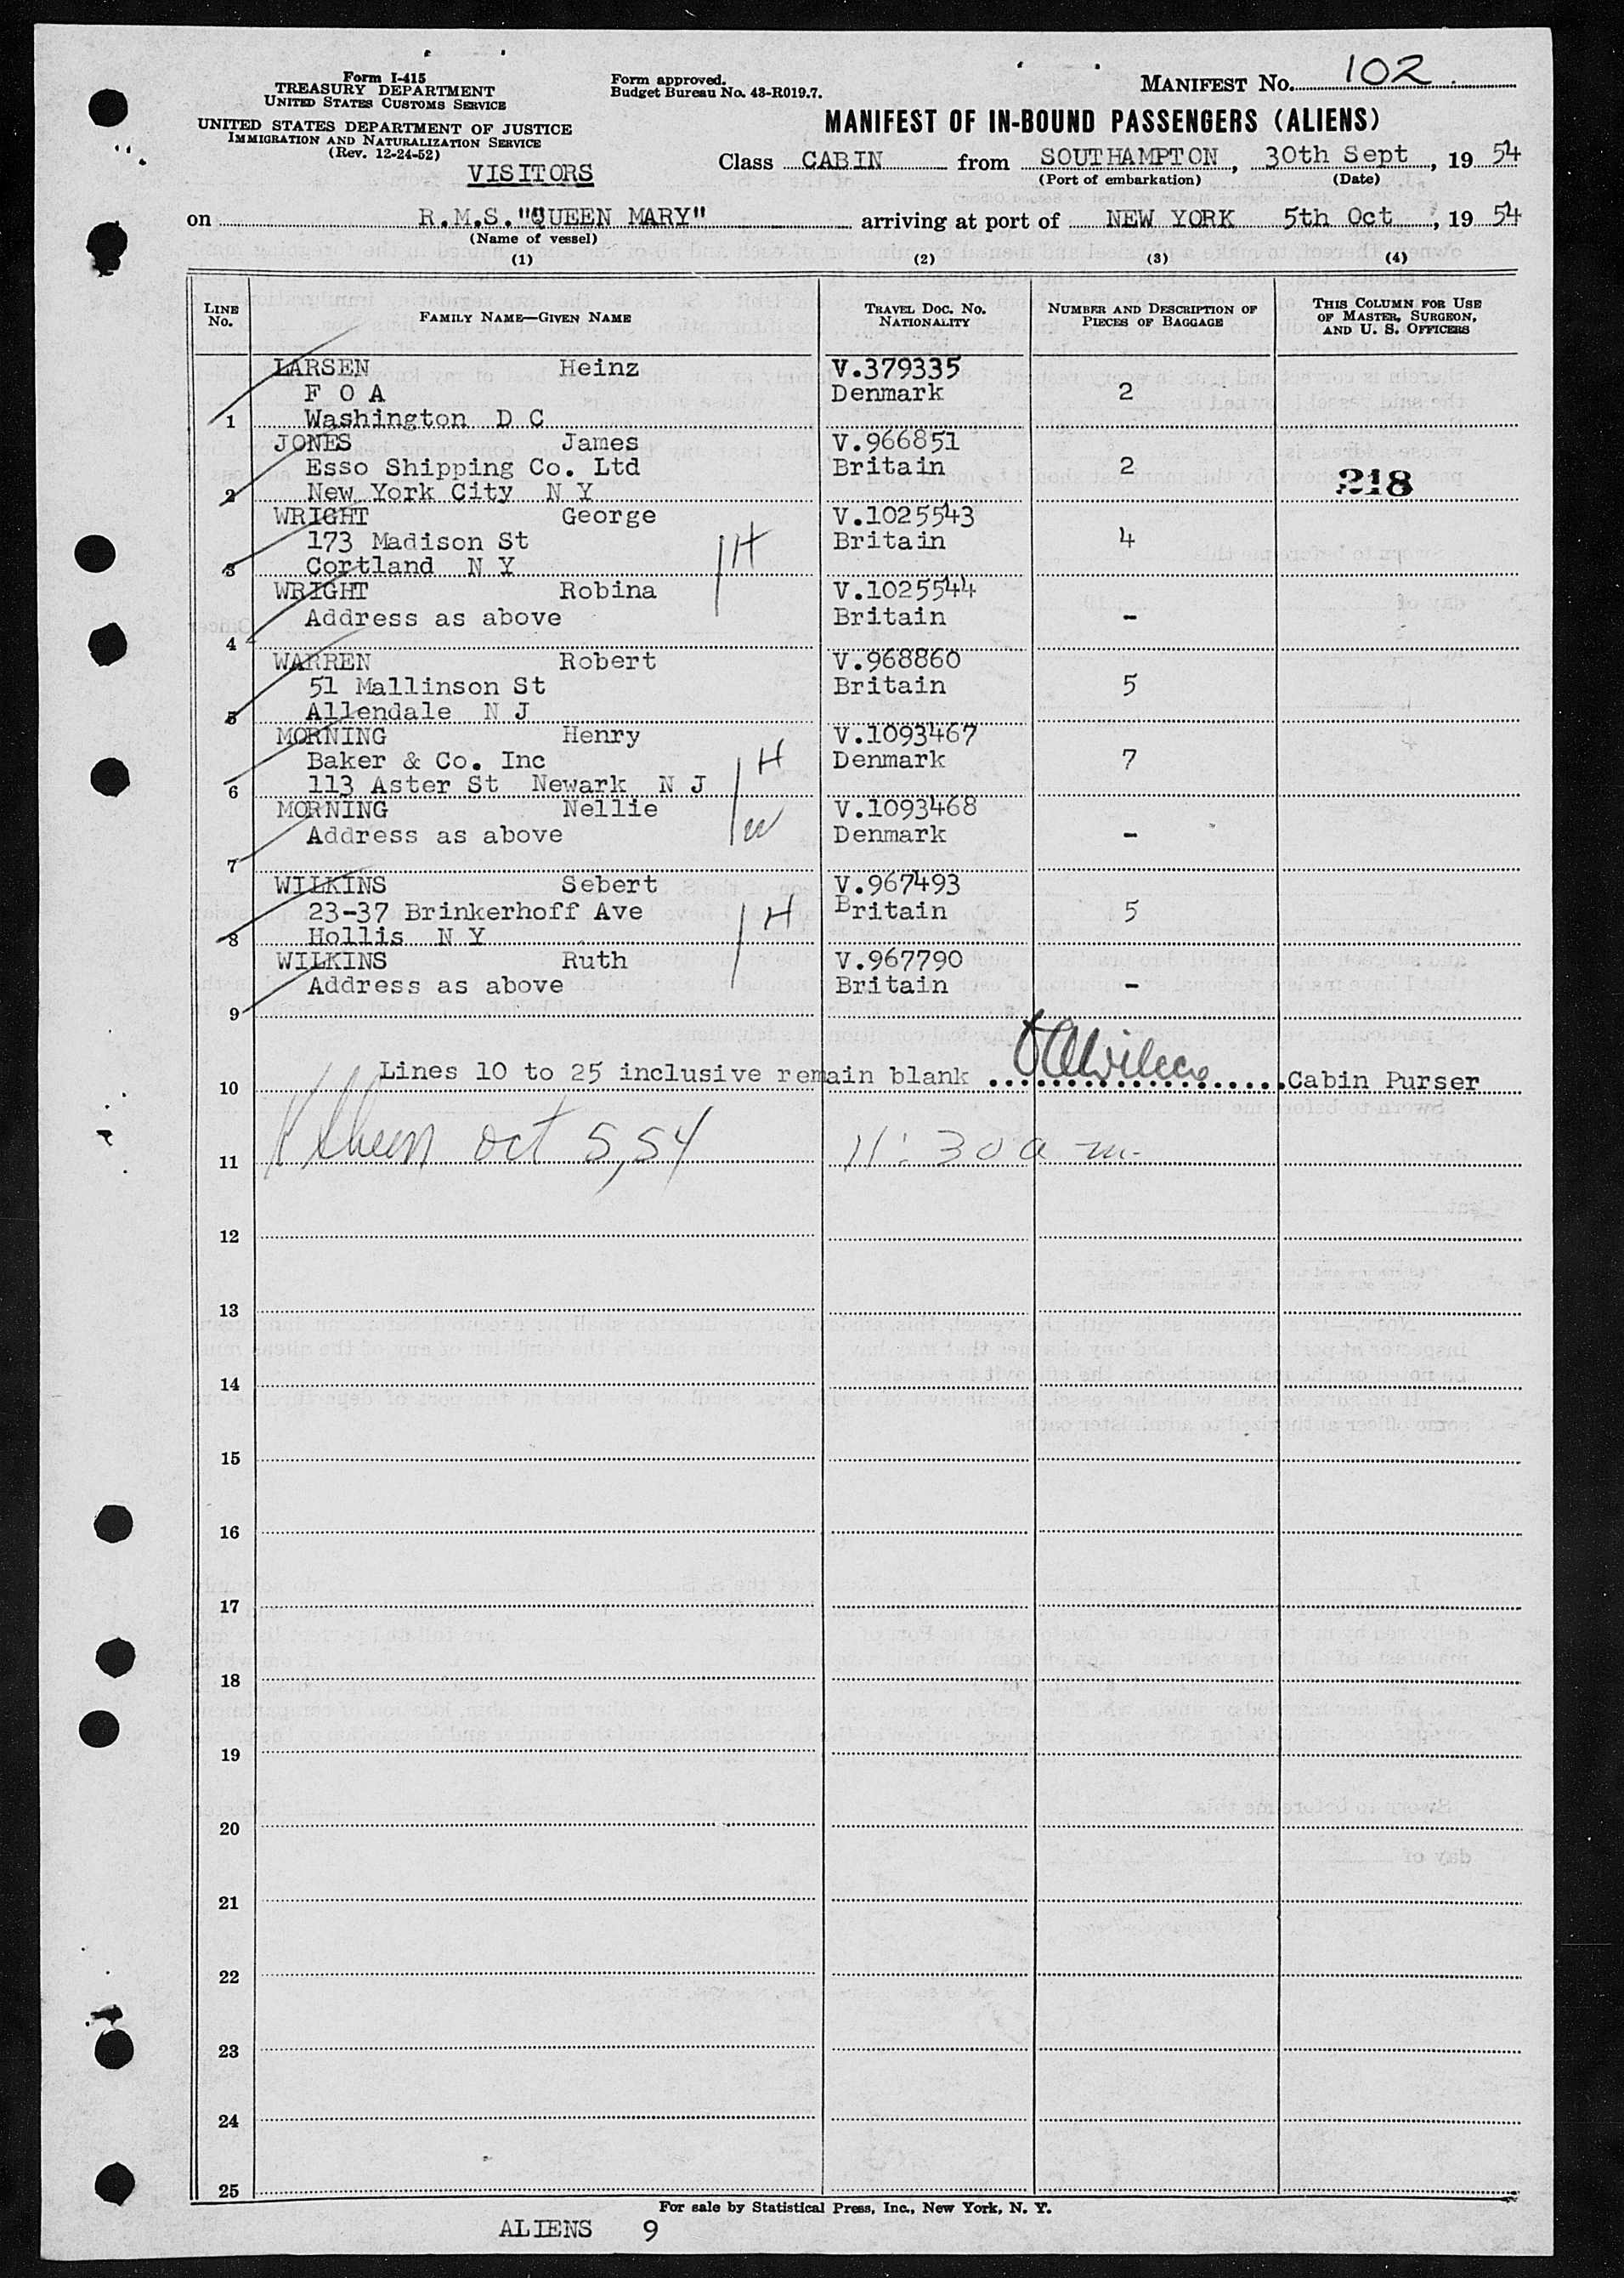 Form I-415
TREASURY DEPARTMENT
UNITED STATES CUSTOMS SERVICE
UNITED STATES DEPARTMENT OF JUSTICE
IMMIGRATION AND NATURALIZATION SERVICE
(Rev. 12-24-52)
VISITORS
Form approved.
Budget Bureau No. 43-R019.7.
MANIFEST No. 102
MANIFEST OF IN-BOUND PASSENGERS (ALIENS)
Class CABIN from SOUTHAMPTON, 30th Sept, 19 54
(Port of embarkation) (Date)
on R.M.S."QUEEN MARY" arriving at port of NEW YORK 5th Oct, 19 54
(Name of vessel)
(1) (2) (3) (4)
LINE No. FAMILY NAME—GIVEN NAME TRAVEL DOC. No. NATIONALITY NUMBER AND DESCRIPTION OF PIECES OF BAGGAGE THIS COLUMN FOR USE OF MASTER, SURGEON, AND U. S. OFFICERS
LARSEN Heinz V.379335
F O A Denmark 2
1 Washington D C
JONES James V.966851
Esso Shipping Co. Ltd Britain 2 218
2 New York City N Y
WRIGHT George V.1025543
173 Madison St H Britain 4
3 Cortland N Y
WRIGHT Robina V.1025544
Address as above Britain -
4
WARREN Robert V.968860
51 Mallinson St Britain 5
5 Allendale N J
MORNING Henry V.1093467
Baker & Co. Inc H Denmark 7
6 113 Aster St Newark N J
MORNING Nellie V.1093468
Address as above W Denmark -
7
WILKINS Sebert V.967493
23-37 Brinkerhoff Ave H Britain 5
8 Hollis N Y
WILKINS Ruth V.967790
Address as above Britain -
9
10 Lines 10 to 25 inclusive remain blank Cabin Purser
11 oct 5,54 11:30 a m.
12
13
14
15
16
17
18
19
20
21
22
23
24
25
For sale by Statistical Press, Inc., New York, N. Y.
ALIENS 9